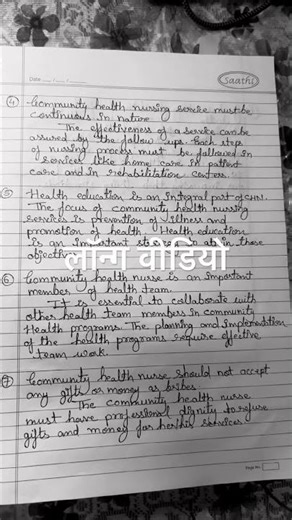 Saathi
Date
④ Community health nursing service must be
continuous in nature
The effectiveness of a service can be
assured by the follow ups. Each steps
of nursing process must be followed in
services like home care in patient
care and in rehabilitation centers.
⑤ Health education is an integral part of CHN.
The focus of community health nursing
services is prevention of illness and
promotion of health. Health education
is an important to in these
लॉन्ग वीडियो
objective
⑥ Community health nurse is an important
member of health team.
It is essential to collaborate with
other health team members in community
Health programs. The planning and implementation
of the health programs require effective
team work.
⑦ Community health nurse should not accept
any gifts or money as bribes
The community health nurse
must have professional dignity to refuse
gifts and money for her/his services
Page No.